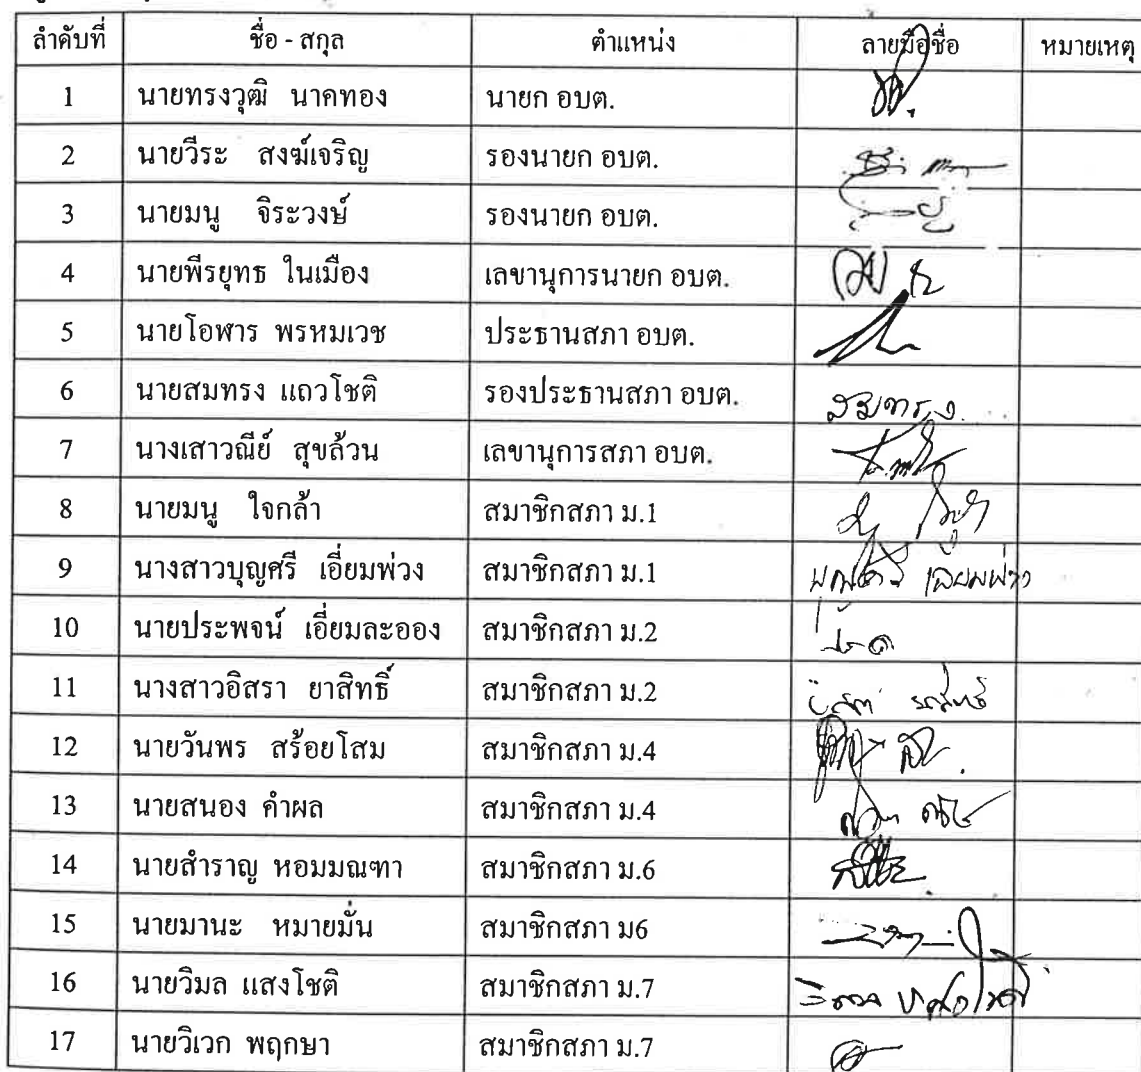 ลำดับที่ ชื่อ - สกุล ตำแหน่ง ลายมือชื่อ หมายเหตุ
1 นายทรงวุฒิ นาคทอง นายก อบต.
2 นายวีระ สงฆ์เจริญ รองนายก อบต.
3 นายมนู จิระวงษ์ รองนายก อบต.
4 นายพีรยุทธ ในเมือง เลขานุการนายก อบต.
5 นายโอฬาร พรหมเวช ประธานสภา อบต.
6 นายสมทรง แถวโชติ รองประธานสภา อบต. สมทรง
7 นางเสาวณีย์ สุขล้วน เลขานุการสภา อบต.
8 นายมนู ใจกล้า สมาชิกสภา ม.1
9 นางสาวบุญศรี เอี่ยมพ่วง สมาชิกสภา ม.1 บุญศรี เอี่ยมพ่วง
10 นายประพจน์ เอี่ยมละออง สมาชิกสภา ม.2
11 นางสาวอิสรา ยาสิทธิ์ สมาชิกสภา ม.2
12 นายวันพร สร้อยโสม สมาชิกสภา ม.4
13 นายสนอง คำผล สมาชิกสภา ม.4
14 นายสำราญ หอมมณฑา สมาชิกสภา ม.6
15 นายมานะ หมายมั่น สมาชิกสภา ม6
16 นายวิมล แสงโชติ สมาชิกสภา ม.7 วิมล แสงโชติ
17 นายวิเวก พฤกษา สมาชิกสภา ม.7